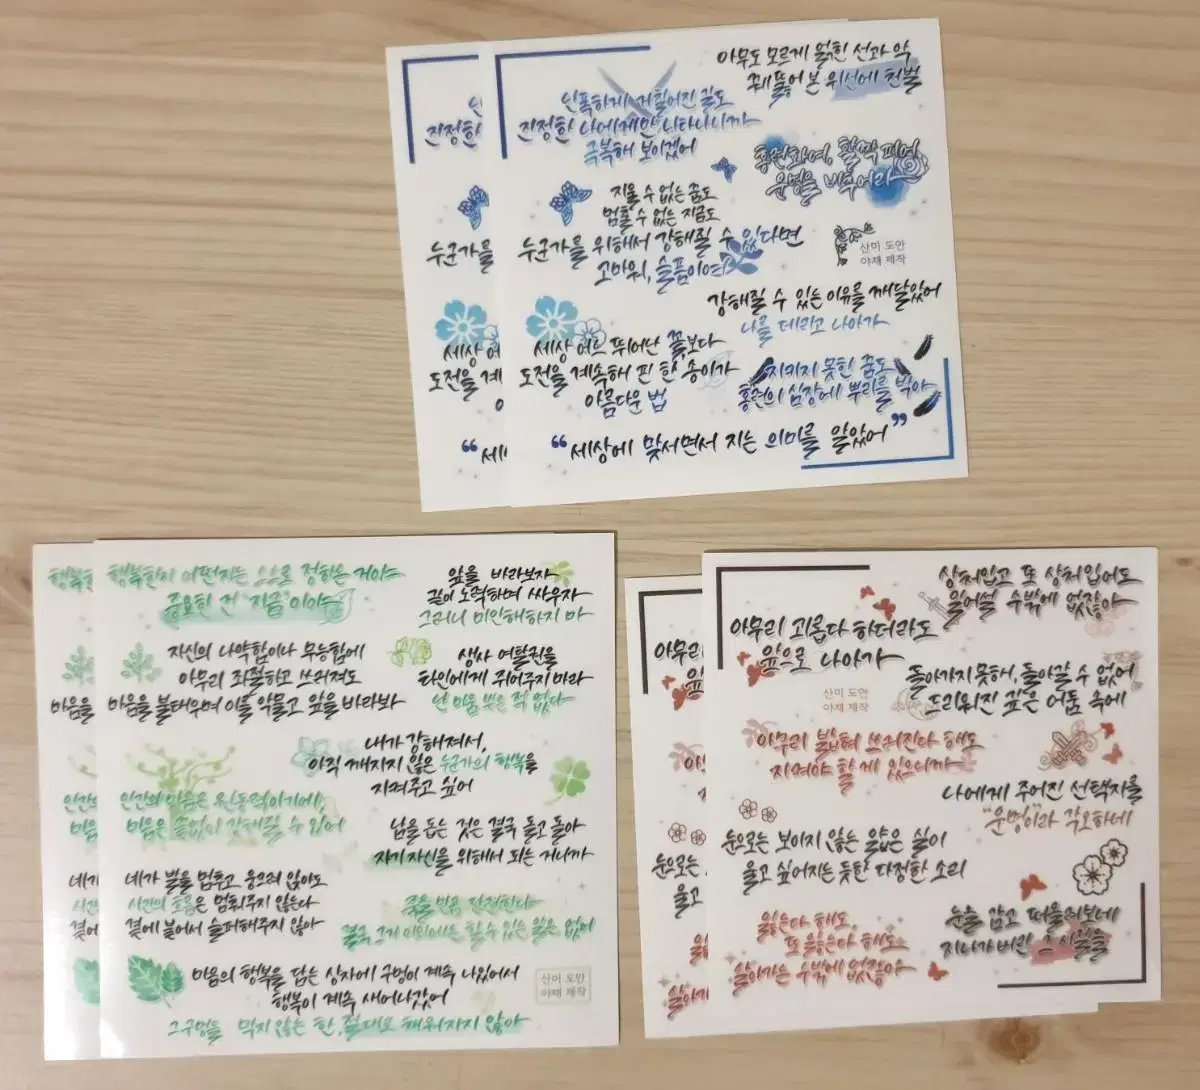 아무도 모르게 얽힌 선과 악
꿰뚫어 본 위선에 천벌
난폭하게 거칠어진 길도
진정한 나에게만 나타나니까
극복해 보이겠어
홍련화여, 활짝 피어
운명을 비추어라
지울 수 없는 꿈도
멈출 수 없는 지금도
누군가를 위해서 강해질 수 있다면
고마워, 슬픔이여
산미 도안
야채 제작
강해질 수 있는 이유를 깨달았어
나를 데리고 나아가
세상 어느 뛰어난 꽃보다
도전을 계속해 핀 한 송이가
아름다운 법
지키지 못한 꿈도
홍련의 심장에 뿌리를 박아
“세상에 맞서면서 지는 의미를 알았어”
진정한
누군가를
세상 어
도전을 계
“세
행복한지 어떤지는 스스로 정하는 거야
중요한 건 '지금'이야
앞을 바라보자
같이 노력하며 싸우자
그러니 미안해하지 마
자신의 나약함이나 무능함에
아무리 좌절하고 쓰러져도
마음을 불태우며 이를 악물고 앞을 바라봐
생사 여탈권을
타인에게 쥐어주지 마라
넌 아무 쓸모 없다
내가 강해져서,
아직 깨지지 않은 누군가의 행복을
지켜주고 싶어
인간의 마음은 원동력이기에,
마음은 끝없이 강해질 수 있어
남을 돕는 것은 결국 돌고 돌아
자기 자신을 위해서 되는 거니까
네가 발을 멈추고 웅크려 앉아도
시간의 흐름은 멈춰주지 않는다
곁에 붙어서 슬퍼해주지 않아
죽을 만큼 단련한다
결국 그거 이외에는 할 수 있는 일은 없어
마음의 행복을 담는 상자에 구멍이 계속 나있어서
행복이 계속 새어나갔어
산미 도안
야채 제작
그 구멍을 막지 않는 한, 절대로 채워지지 않아
행복한
마음을
인간의
마음은
네가
시간의
곁에
상처입고 또 상처입어도
일어설 수밖에 없잖아
아무리 괴롭다 하더라도
앞으로 나아가
돌아가지 못해, 돌아갈 수 없어
드리워진 깊은 어둠 속에
산미 도안
야채 제작
아무리 밟혀 쓰러진다 해도
지켜야 할 게 있으니까
나에게 주어진 선택지를
"운명"이라 각오하네
눈으로는 보이지 않는 얇은 실이
울고 싶어지는 듯한 다정한 소리
눈을 감고 떠올려보네
지나가버린 그 시절을
잃는다 해도,
또 잃는다 해도
살아가는 수밖에 없잖아
아무리
눈으로는
울고
살아가